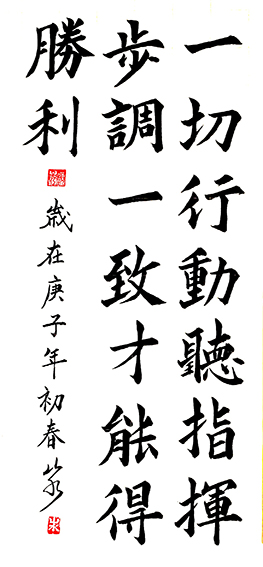 一切行動聽指揮
步調一致才能得
勝利
歲在庚子年初春